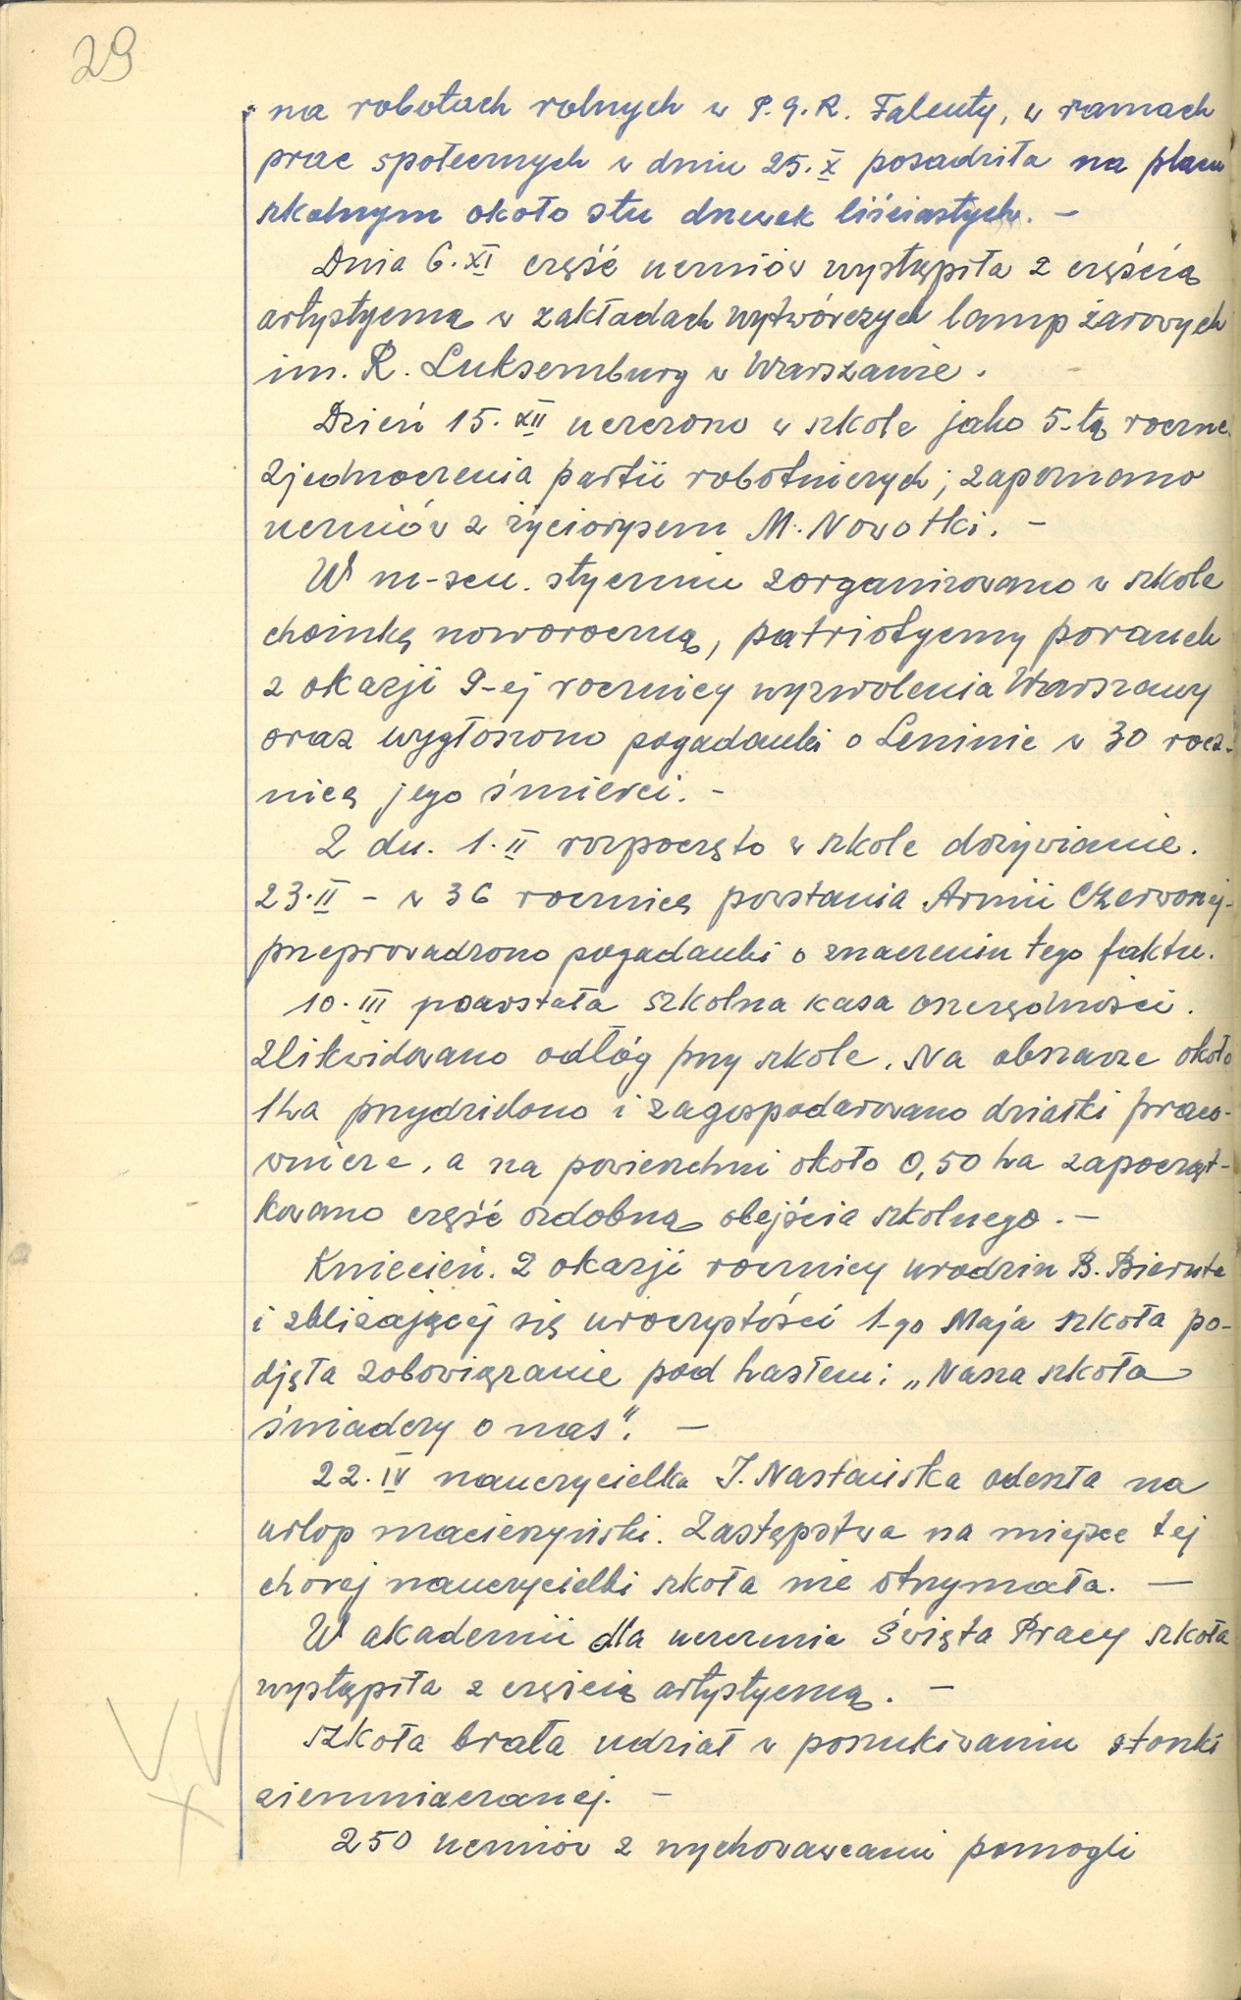 29
na robotach rolnych w P.G.R. Falenty, w ramach
prac społecznych w dniu 25.X posadziła na placu
szkolnym około stu drzewek liściastych. –
Dnia 6.XI część uczniów wystąpiła z częścią
artystyczną w zakładach wytwórczych lamp żarowych
im. R. Luksemburg w Warszawie.
Dzień 15.XII uczczono w szkole jako 5-tą roczn.
zjednoczenia partii robotniczych; zapoznano
uczniów z życiorysem M. Nowotki. –
W m-scu. styczniu zorganizowano w szkole
choinkę noworoczną, patriotyczny poranek
z okazji 9-ej rocznicy wyzwolenia Warszawy
oraz wygłoszono pogadanki o Leninie w 30 rocz-
nicę jego śmierci. –
Z dn. 1.II rozpoczęto w szkole dożywianie.
23.II – w 36 rocznicę powstania Armii Czerwonej-
przeprowadzono pogadanki o znaczeniu tego faktu.
10.III powstała szkolna kasa oszczędności.
Zlikwidowano odłóg przy szkole. Na obszarze około
1ha przydzielono i zagospodarowano działki praco-
wnicze, a na powierzchni około 0,50 ha zapocząt-
kowano część ozdobną obejścia szkolnego. –
Kwiecień. Z okazji rocznicy urodzin B. Bieruta
i zbliżającej się uroczystości 1-go Maja szkoła po-
djęła zobowiązanie pod hasłem: „Nasza szkoła
świadczy o nas". –
22.IV nauczycielka J. Nastańska odeszła na
urlop macierzyński. Zastępstwa na miejsce tej
chorej nauczycielki szkoła nie otrzymała. –
W akademii dla uczczenia Święta Pracy szkoła
wystąpiła z częścią artystyczną. –
Szkoła brała udział w poszukiwaniu stonki
ziemniaczanej. –
250 uczniów z wychowawcami pomogli